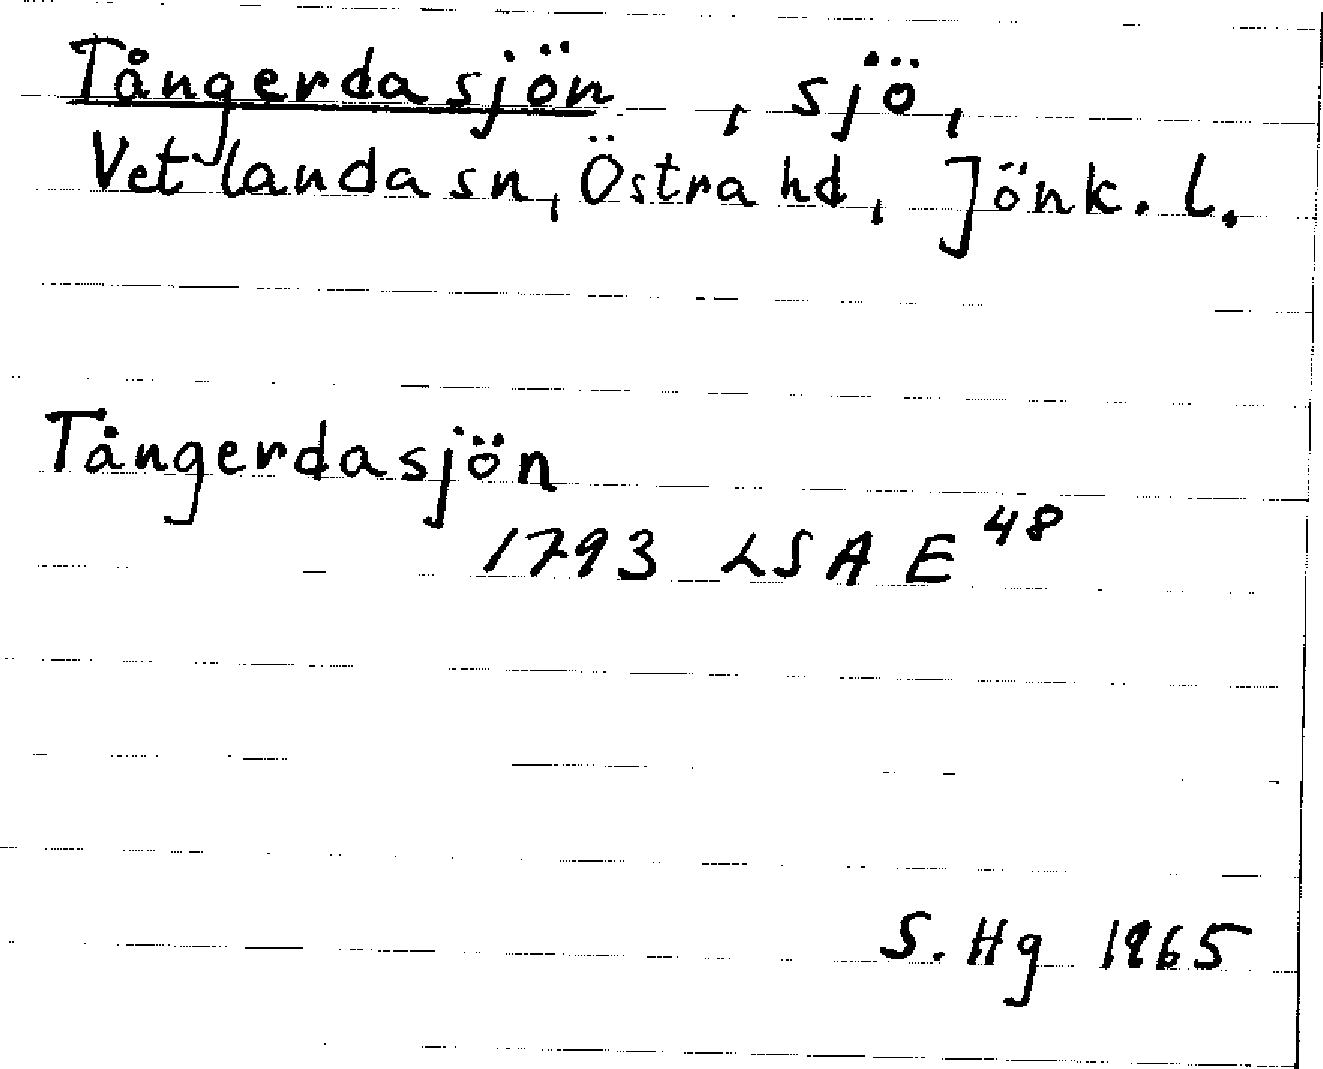 Tångerdasjön, sjö,
Vetlanda sn, Östra hd, Jönk. l.
Tångerdasjön
1793 LSA E 48
S. Hg 1965